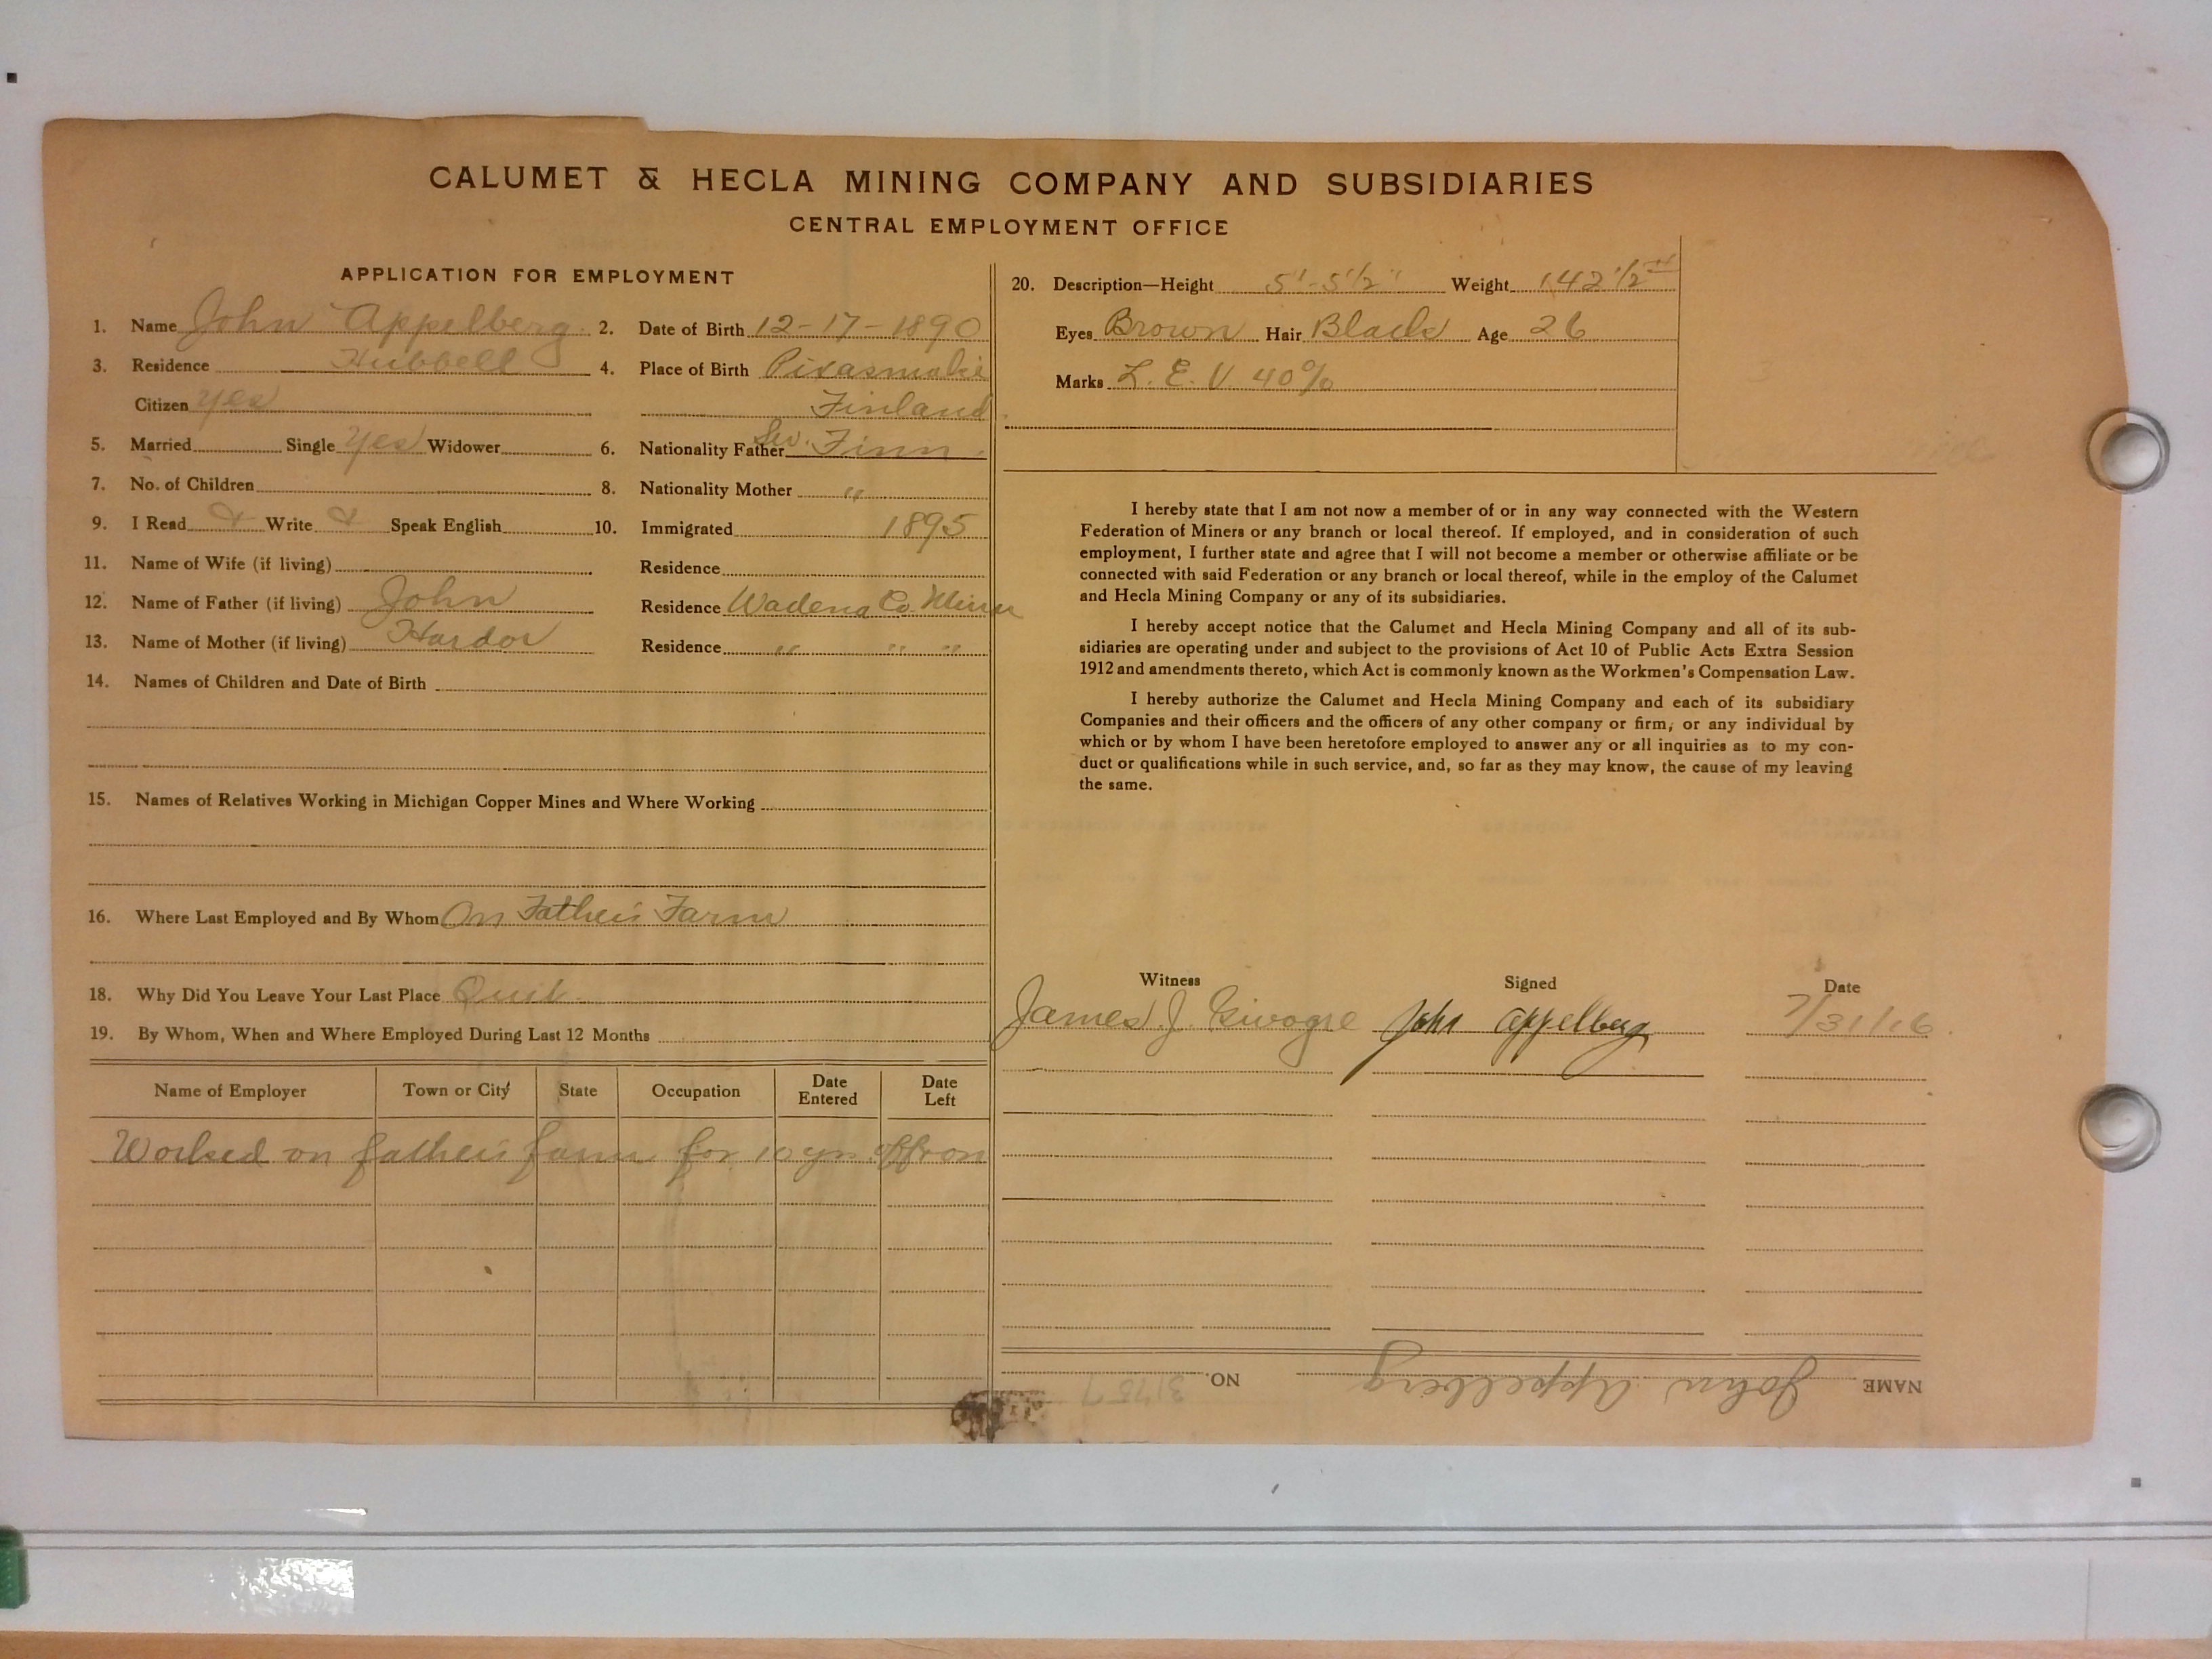 CALUMET & HECLA MINING COMPANY AND SUBSIDIARIES
CENTRAL EMPLOYMENT OFFICE
APPLICATION FOR EMPLOYMENT
1. Name John Appelberg 2. Date of Birth 12-17-1890
3. Residence Hubbell 4. Place of Birth
Citizen yes Finland
5. Married Single yes Widower 6. Nationality Father Sw. Finn
7. No. of Children 8. Nationality Mother "
9. I Read & Write & Speak English 10. Immigrated 1895
11. Name of Wife (if living) Residence
12. Name of Father (if living) John Residence Wadena Co. Minn
13. Name of Mother (if living) Residence " " "
14. Names of Children and Date of Birth
15. Names of Relatives Working in Michigan Copper Mines and Where Working
16. Where Last Employed and By Whom On Father's Farm
18. Why Did You Leave Your Last Place Quit.
19. By Whom, When and Where Employed During Last 12 Months
Name of Employer Town or City State Occupation Date Entered Date Left
Worked on father's farm for 10 yrs off on
20. Description—Height 5'-5 1/2" Weight 142 1/2 #
Eyes Brown Hair Black Age 26
Marks L. E. V 40%
I hereby state that I am not now a member of or in any way connected with the Western
Federation of Miners or any branch or local thereof. If employed, and in consideration of such
employment, I further state and agree that I will not become a member or otherwise affiliate or be
connected with said Federation or any branch or local thereof, while in the employ of the Calumet
and Hecla Mining Company or any of its subsidiaries.
I hereby accept notice that the Calumet and Hecla Mining Company and all of its sub-
sidiaries are operating under and subject to the provisions of Act 10 of Public Acts Extra Session
1912 and amendments thereto, which Act is commonly known as the Workmen's Compensation Law.
I hereby authorize the Calumet and Hecla Mining Company and each of its subsidiary
Companies and their officers and the officers of any other company or firm, or any individual by
which or by whom I have been heretofore employed to answer any or all inquiries as to my con-
duct or qualifications while in such service, and, so far as they may know, the cause of my leaving
the same.
Witness Signed Date
James. J. John Appelberg 7/31/16
NAME John Appelberg NO.